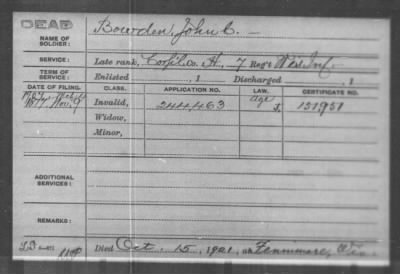 DEAD
NAME OF SOLDIER: Bowden, John C.
SERVICE: Late rank, Corp'l Co. H, 7 Reg't Wis. Inf
TERM OF SERVICE: Enlisted , 1 Discharged , 1
DATE OF FILING. CLASS. APPLICATION NO. LAW. CERTIFICATE NO.
1877 Nov. 9 Invalid, 244463 Age 151951
Widow,
Minor,
ADDITIONAL SERVICES:
REMARKS:
Died Oct. 15, 1921, at Fennimore, Wis.